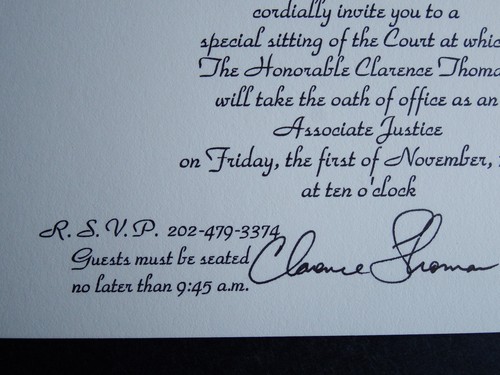 cordially invite you to a
special sitting of the Court at
The Honorable Clarence
will take the oath of office as an
Associate Justice
on Friday, the first of November,
at ten o'clock
R. S. V. P. 202-479-3374
Guests must be seated
no later than 9:45 a.m.
Clarence Thomas